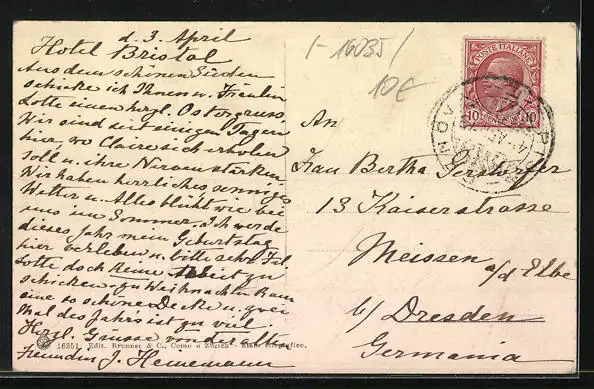 d. 3. April
Hotel Bristol
Aus dem schönen Süden
schicke ich Ihnen u. Fräulein
Lotte einen herzl. Ostergruss.
Wir sind seit einigen Tagen
hier, wo Claire sich erholen
soll u. ihre Nerven stärken.
Wir haben herrliches sonniges
Wetter u. Alles blüht wie bei
uns im Sommer. Ich werde
dieses Jahr mein Geburtstag
hier verleben u. bitte sehr Frl.
Lotte doch keine zu
schicken, zu Weihnachten kam
eine so schöne Decke u. zwei
Mal des Jahrs ist zu viel
Herzl. Grüsse von der alten
Freundin J. Heinemann
16351. Edit. Brunner & C., Como e Zürich - Stab. eliografico.
1-16035/
10€
POSTE ITALIANE
10 CENTESIMI 10
An
Frau Bertha Gersdorfer
13 Kaiserstrasse
Meissen
a/d Elbe
b/ Dresden
Germania